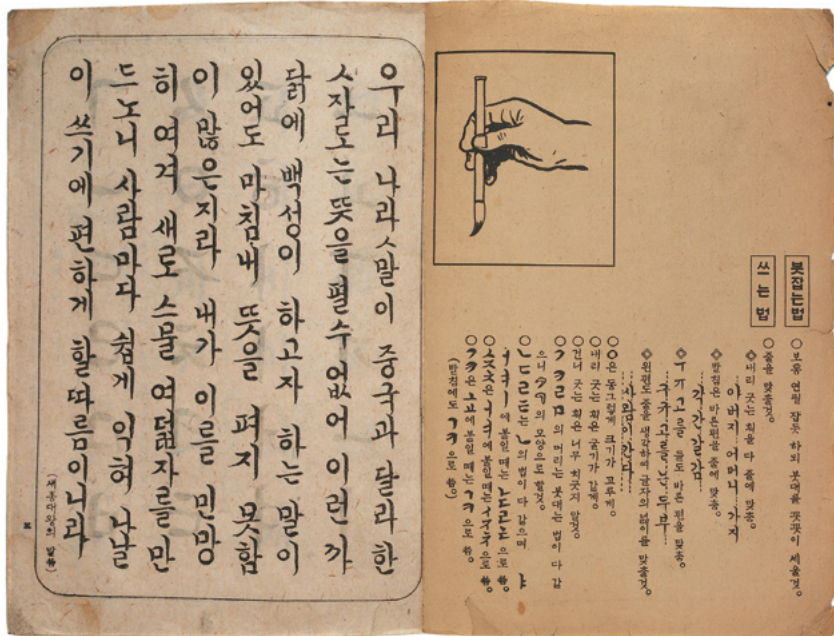 붓잡는법
○보통 연필 잡듯 하되 붓대를 꼿꼿이 세울것。
쓰는법
○줄을 맞출것。
◇내리 긋는 획을 다 줄에 맞춤。
아버지 어머니 가지
◇받침은 바른편을 줄에 맞춤。
각간갈감
바른 편을 맞춤。
◇왼편도 줄을 생각하여 글자의 넓이를 맞출것。
사람이간다
○ㅇ은 동그렇게 크기가 고루게。
○내리 긋는 획은 굵기가 같게。
○건너 긋는 획은 너무 치긋지 말것。
○ㄱㅋㄹㅁ의 머리는 붓대는 법이 다 같
으니 의 모양으로 할것。
○ㄴㄷㄹㅌ는 ㄴ의 법이 다 같으며 ㅏ
ㅓㅕㅣ에 붙일 때는 으로 씀。
○ㅅㅈㅊ은 에 붙일때는 으로 씀。
○ㄱㅋ은 ㅗㅛ에 붙일 때는 ㄱㅋ으로 씀。
(받침에도 ㄱㅋ으로 씀。)
우리 나라ㅅ말이 중국과 달라 한
ㅅ자로는 뜻을 펼수 없어 이런 까
닭에 백성이 하고자 하는 말이
있어도 마침내 뜻을 펴지 못함
이 많은지라 내가 이를 민망
히 여겨 새로 스물 여덟자를 만
드노니 사람마다 쉽게 익혀 나날
이 쓰기에 편하게 할따름이니라
(세종대왕의 말씀)